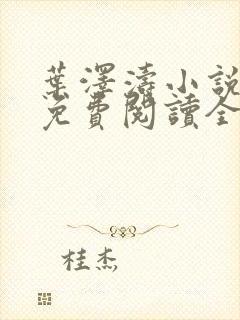 葉澤濤小說
免費閱讀全
桂杰